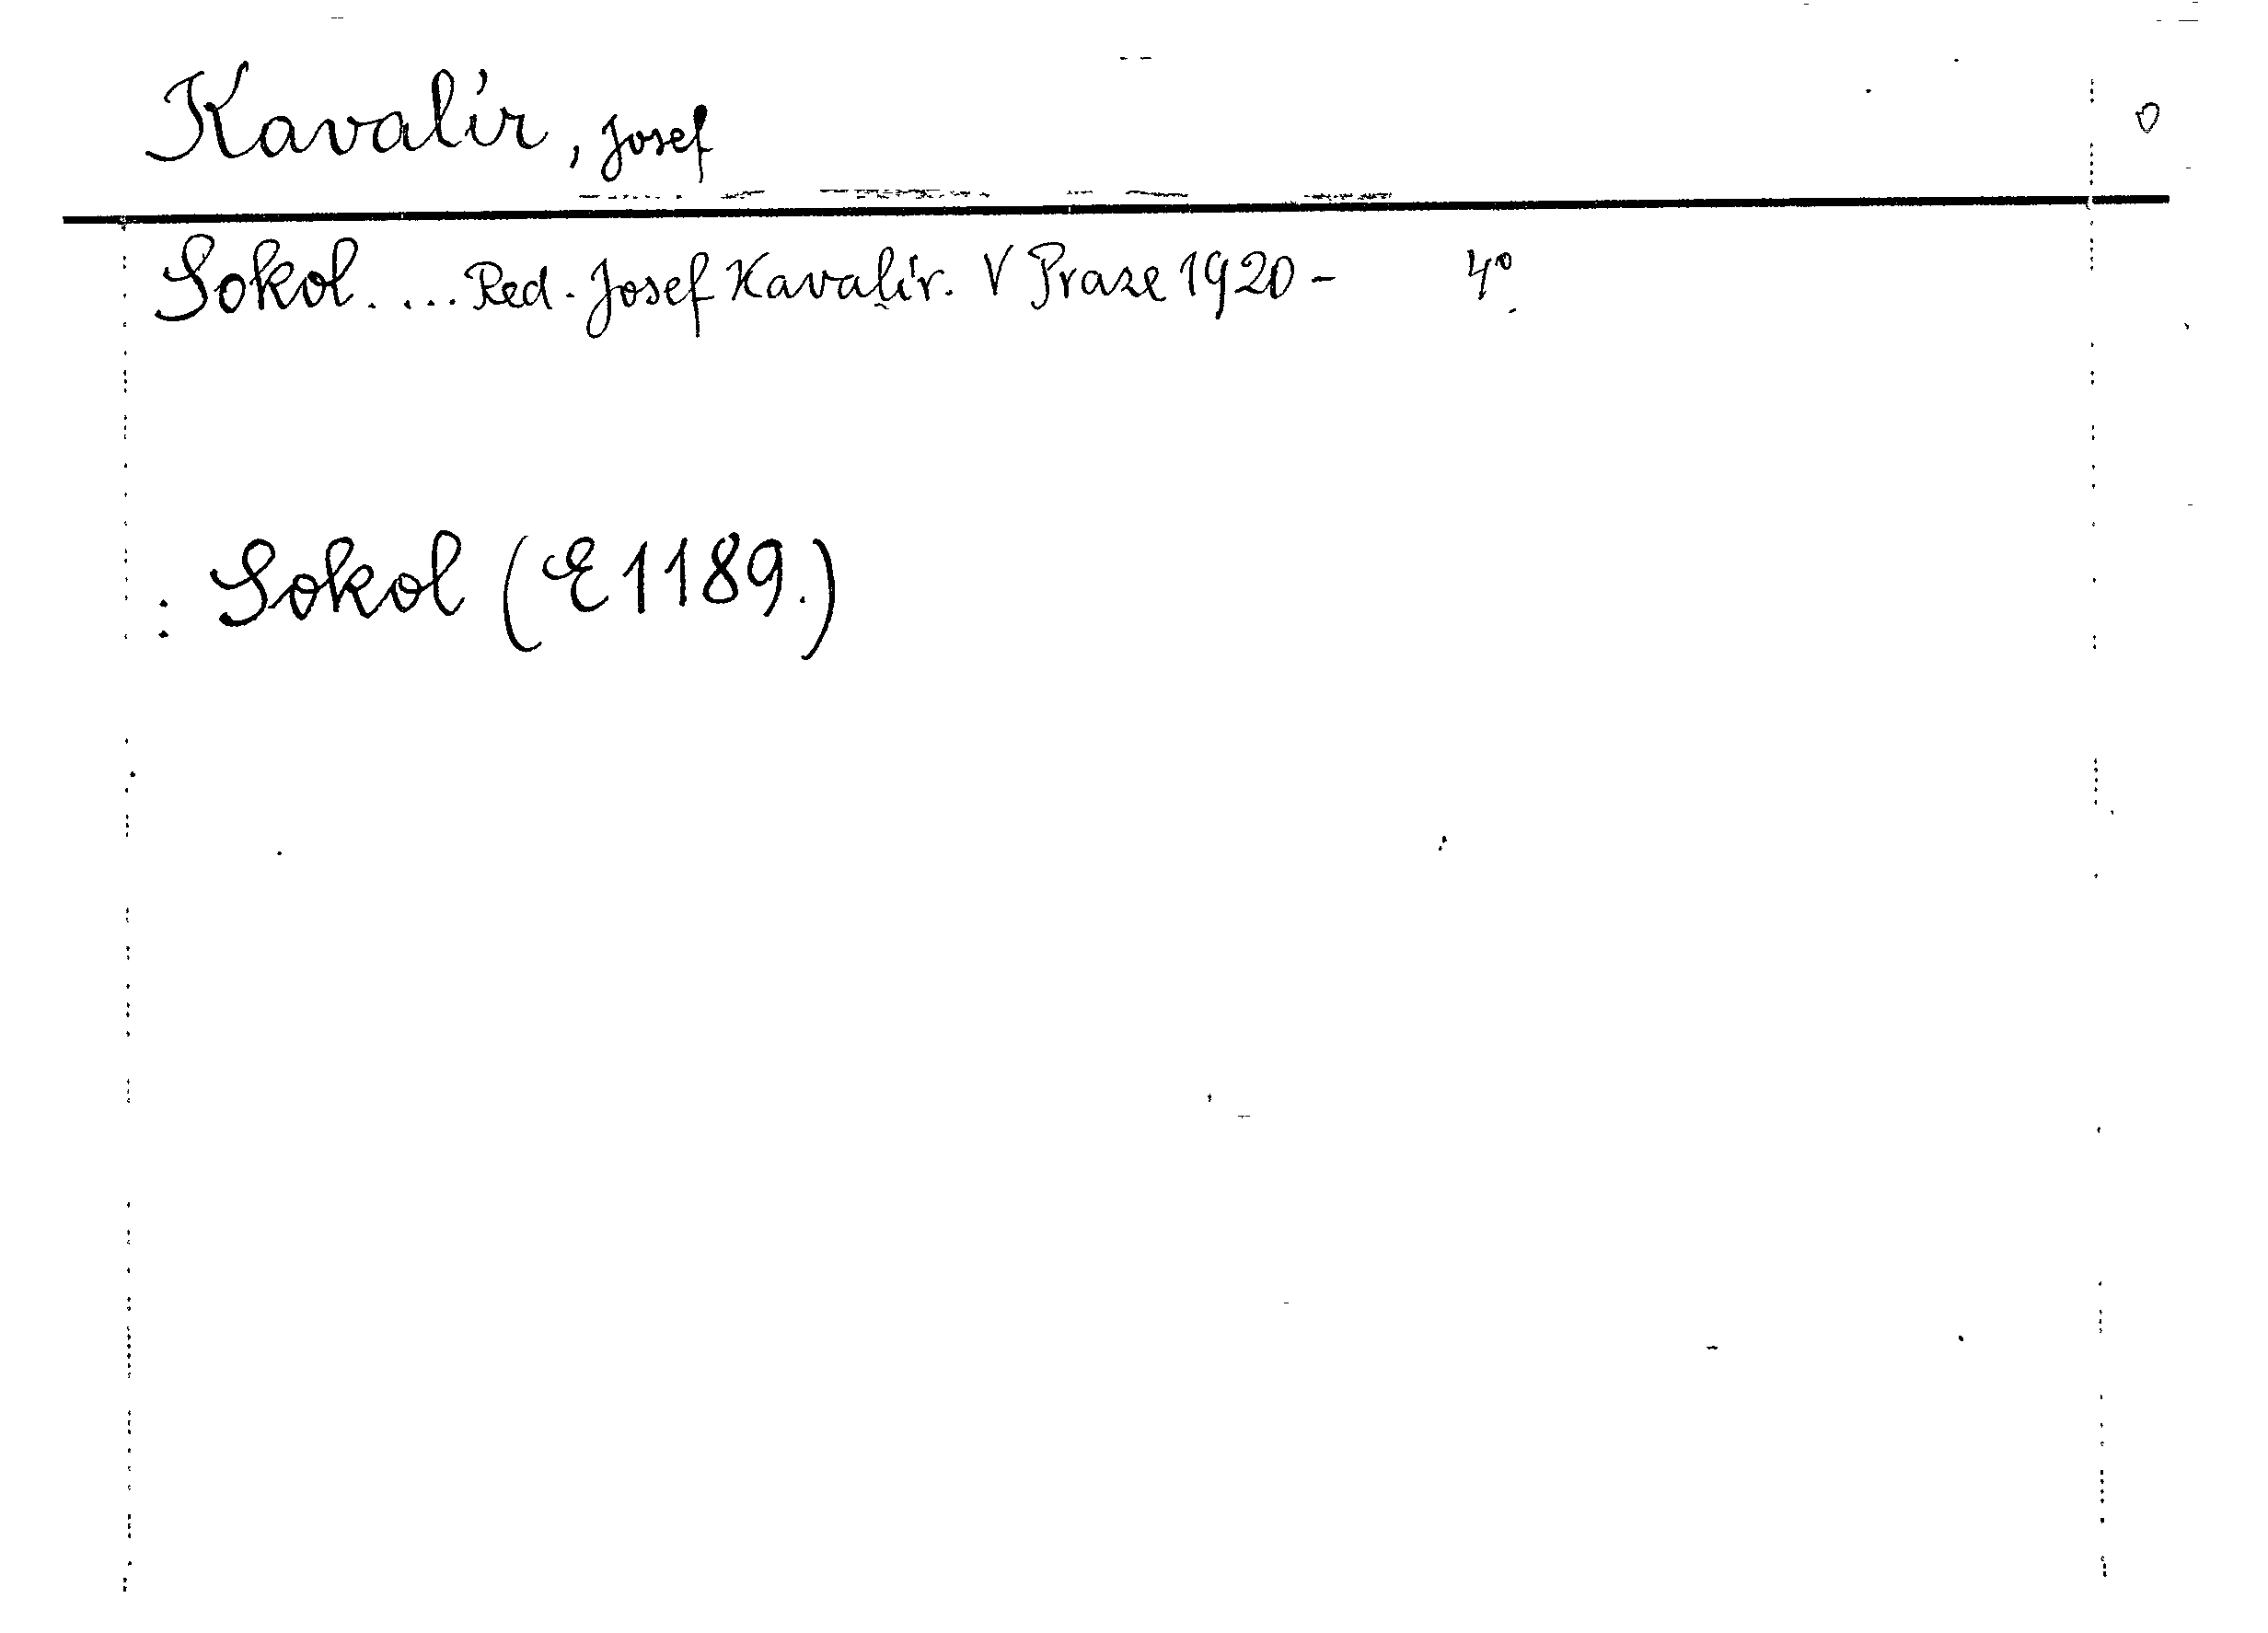 Kavalír, Josef
Sokol. ... Red. Josef Kavalír. V Praze 1920 - 4°.
: Sokol (E 1189.)